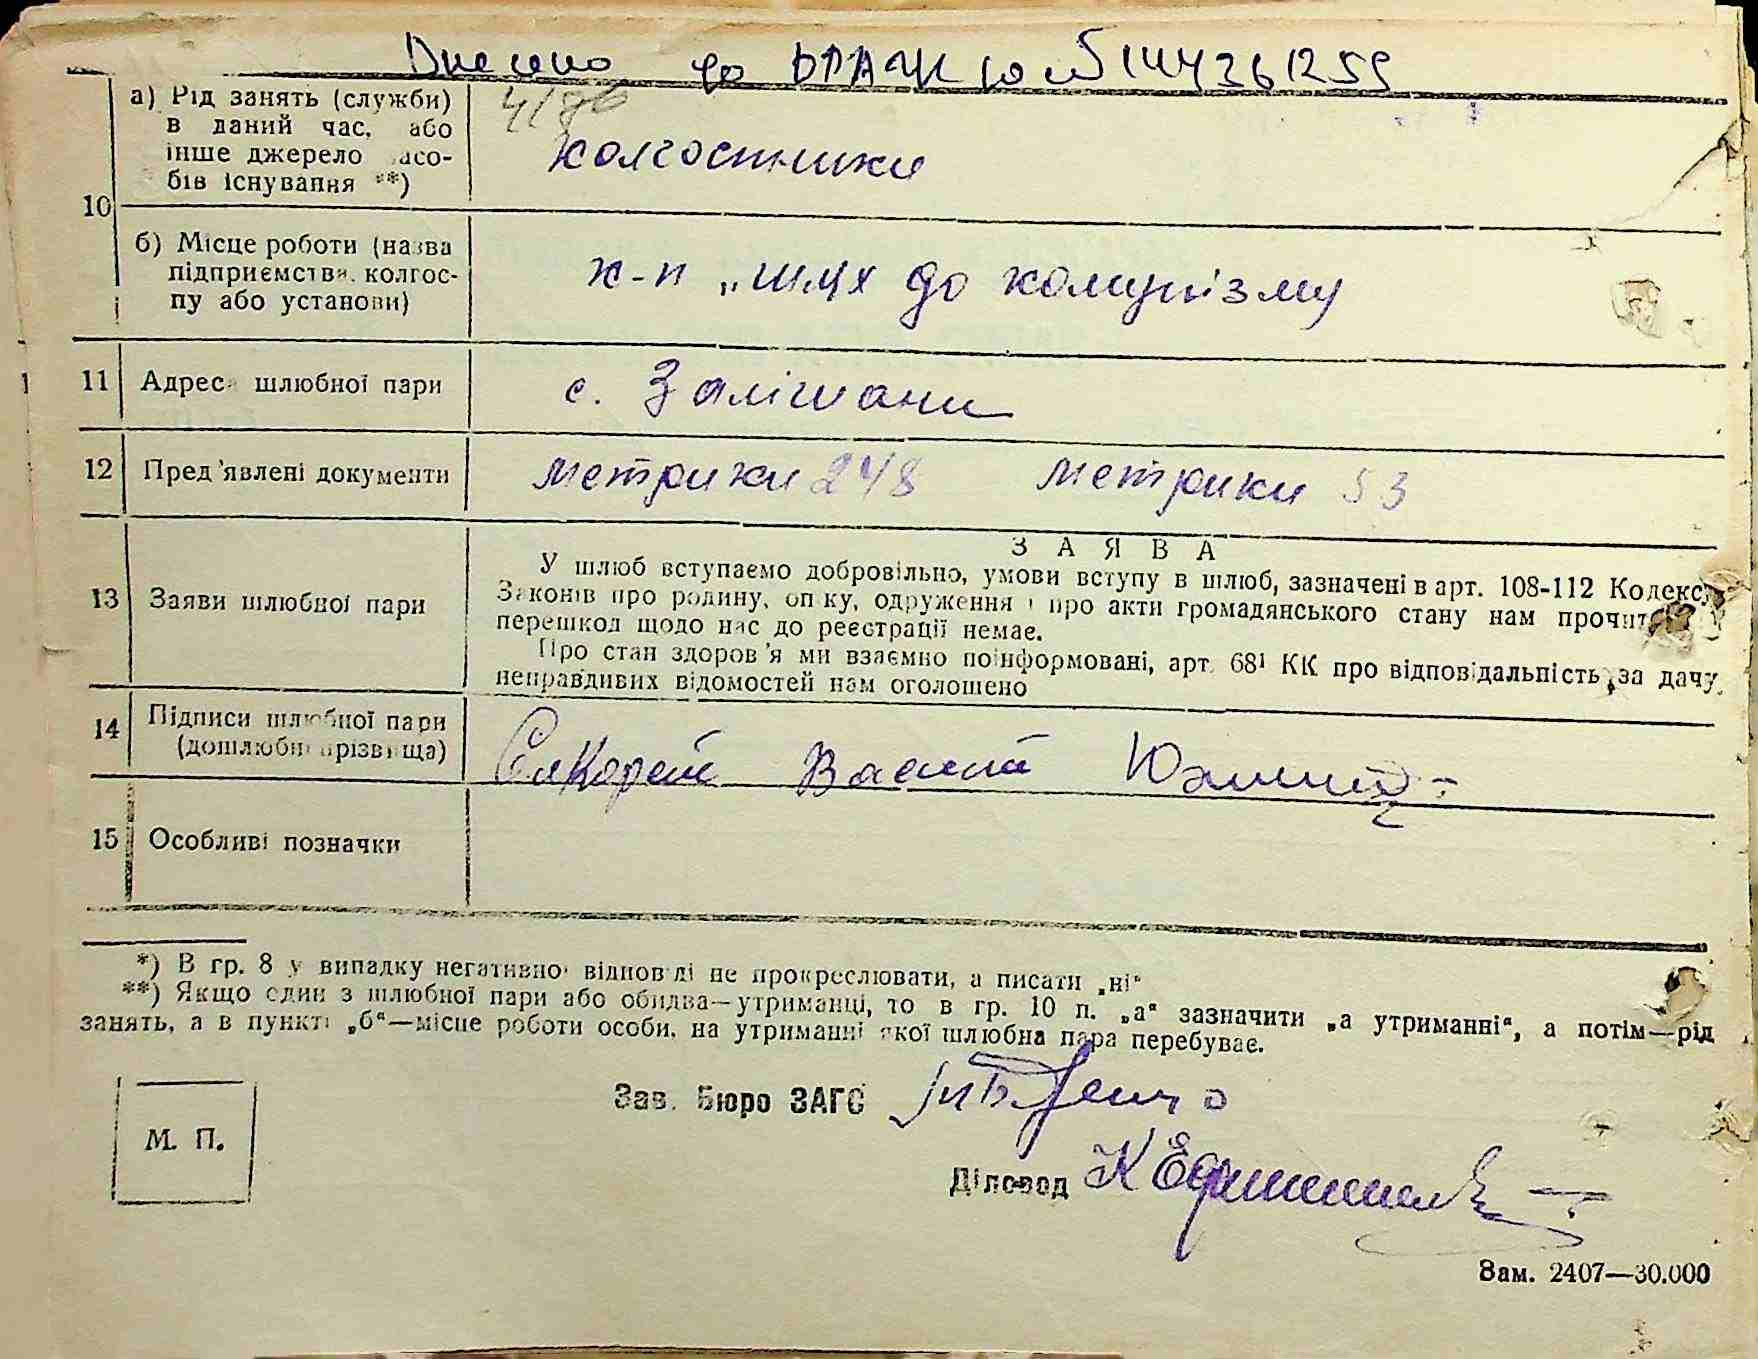 Внесено до ДРАЦС № 144361259
10
а) Рід занять (служби)
в даний час, або
інше джерело засо-
бів існування **)
4/86
колгоспники
б) Місце роботи (назва
підприємства, колгос-
пу або установи)
к-п „шлях до комунізму
11 Адреса шлюбної пари
с. Залішани
12 Пред'явлені документи
метрики 248 метрики 53
13 Заяви шлюбної пари
ЗАЯВА
У шлюб вступаємо добровільно, умови вступу в шлюб, зазначені в арт. 108-112 Кодексу
Законів про родину, опіку, одруження і про акти громадянського стану нам прочит
перешкод щодо нас до реєстрації немає.
Про стан здоров'я ми взаємно поінформовані, арт. 68¹ КК про відповідальність за дачу
неправдивих відомостей нам оголошено
14 Підписи шлюбної пари
(дошлюбні прізвища)
Василь
15 Особливі позначки
*) В гр. 8 у випадку негативної відповіді не прокреслювати, а писати „ні“
**) Якщо один з шлюбної пари або обидва—утриманці, то в гр. 10 п. „а“ зазначити „а утриманні“, а потім—рід
занять, а в пункті „б“—місце роботи особи, на утриманні якої шлюбна пара перебуває.
Зав. Бюро ЗАГС
М. П.
Діловод
Зам. 2407—30.000